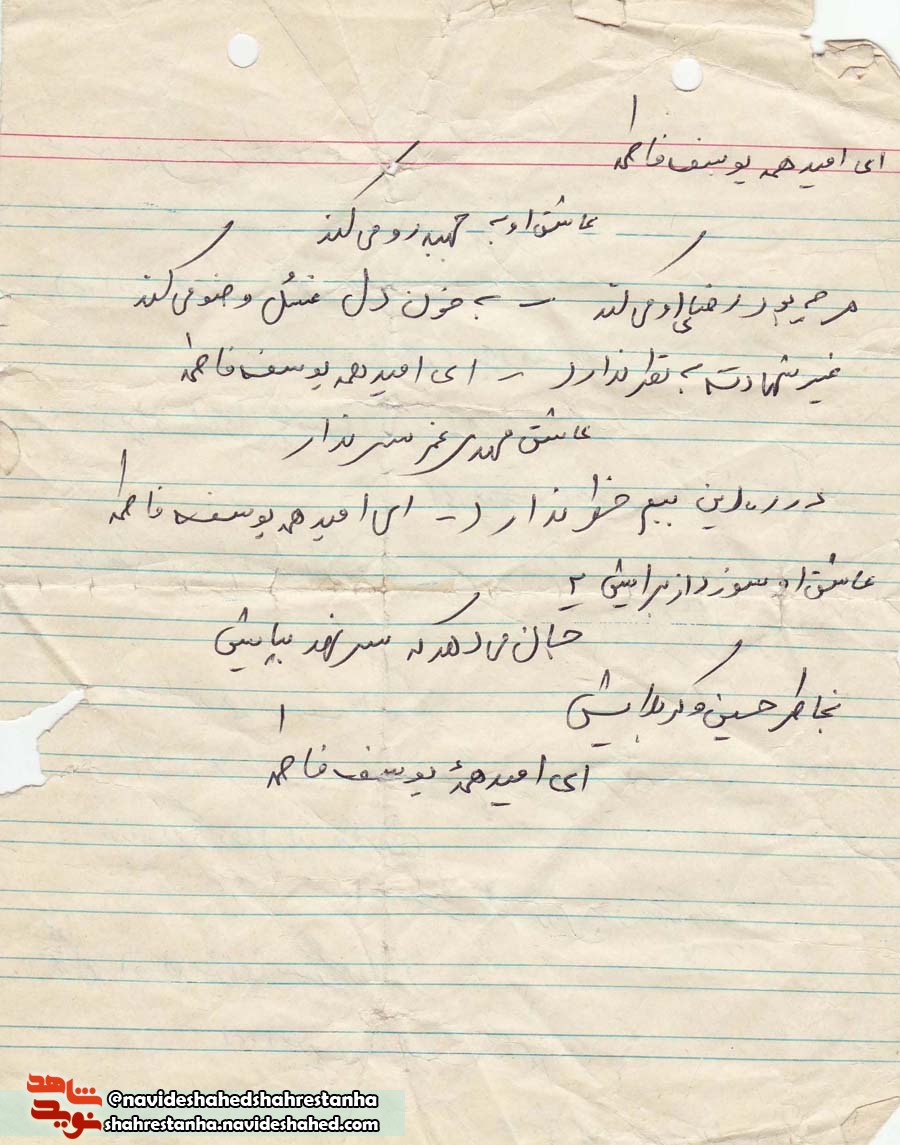 ای امید همه یوسف فاطمه
عاشق او به جبهه رو می کند
هر چه بود رضای او می کند - به خون دل غسل و وضو می کند
غیر شهادت به نظر ندارد - ای امید همه یوسف فاطمه
عاشق مهدی غم سر ندارد
در ره دین بیم خطر ندارد - ای امید همه یوسف فاطمه
عاشق او سوزد از برایش ۲
جان می دهد که سر نهد بپایش
بخاطر حسین و کربلایش
ای امید همهٔ یوسف فاطمه
شاهد
نوید
@navideshahedshahrestanha
shahrestanha.navideshahed.com